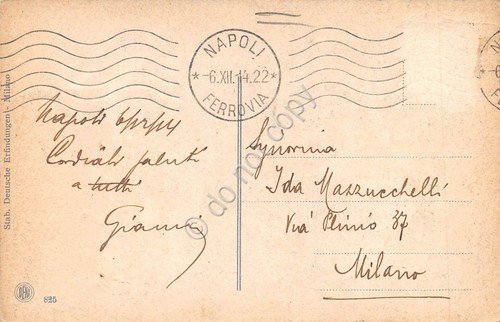 NAPOLI
* -6.XII.14.22 *
FERROVIA
Napoli
Cordiali saluti
a tutti
Gianni
Signorina
Ida Mazzucchelli
Via Plinio 37
Milano
Stab. Deutsche Erfindungen - Milano
825
© do not copy